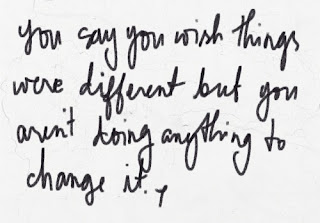 you say you wish things
were different but you
aren't doing anything to
change it.